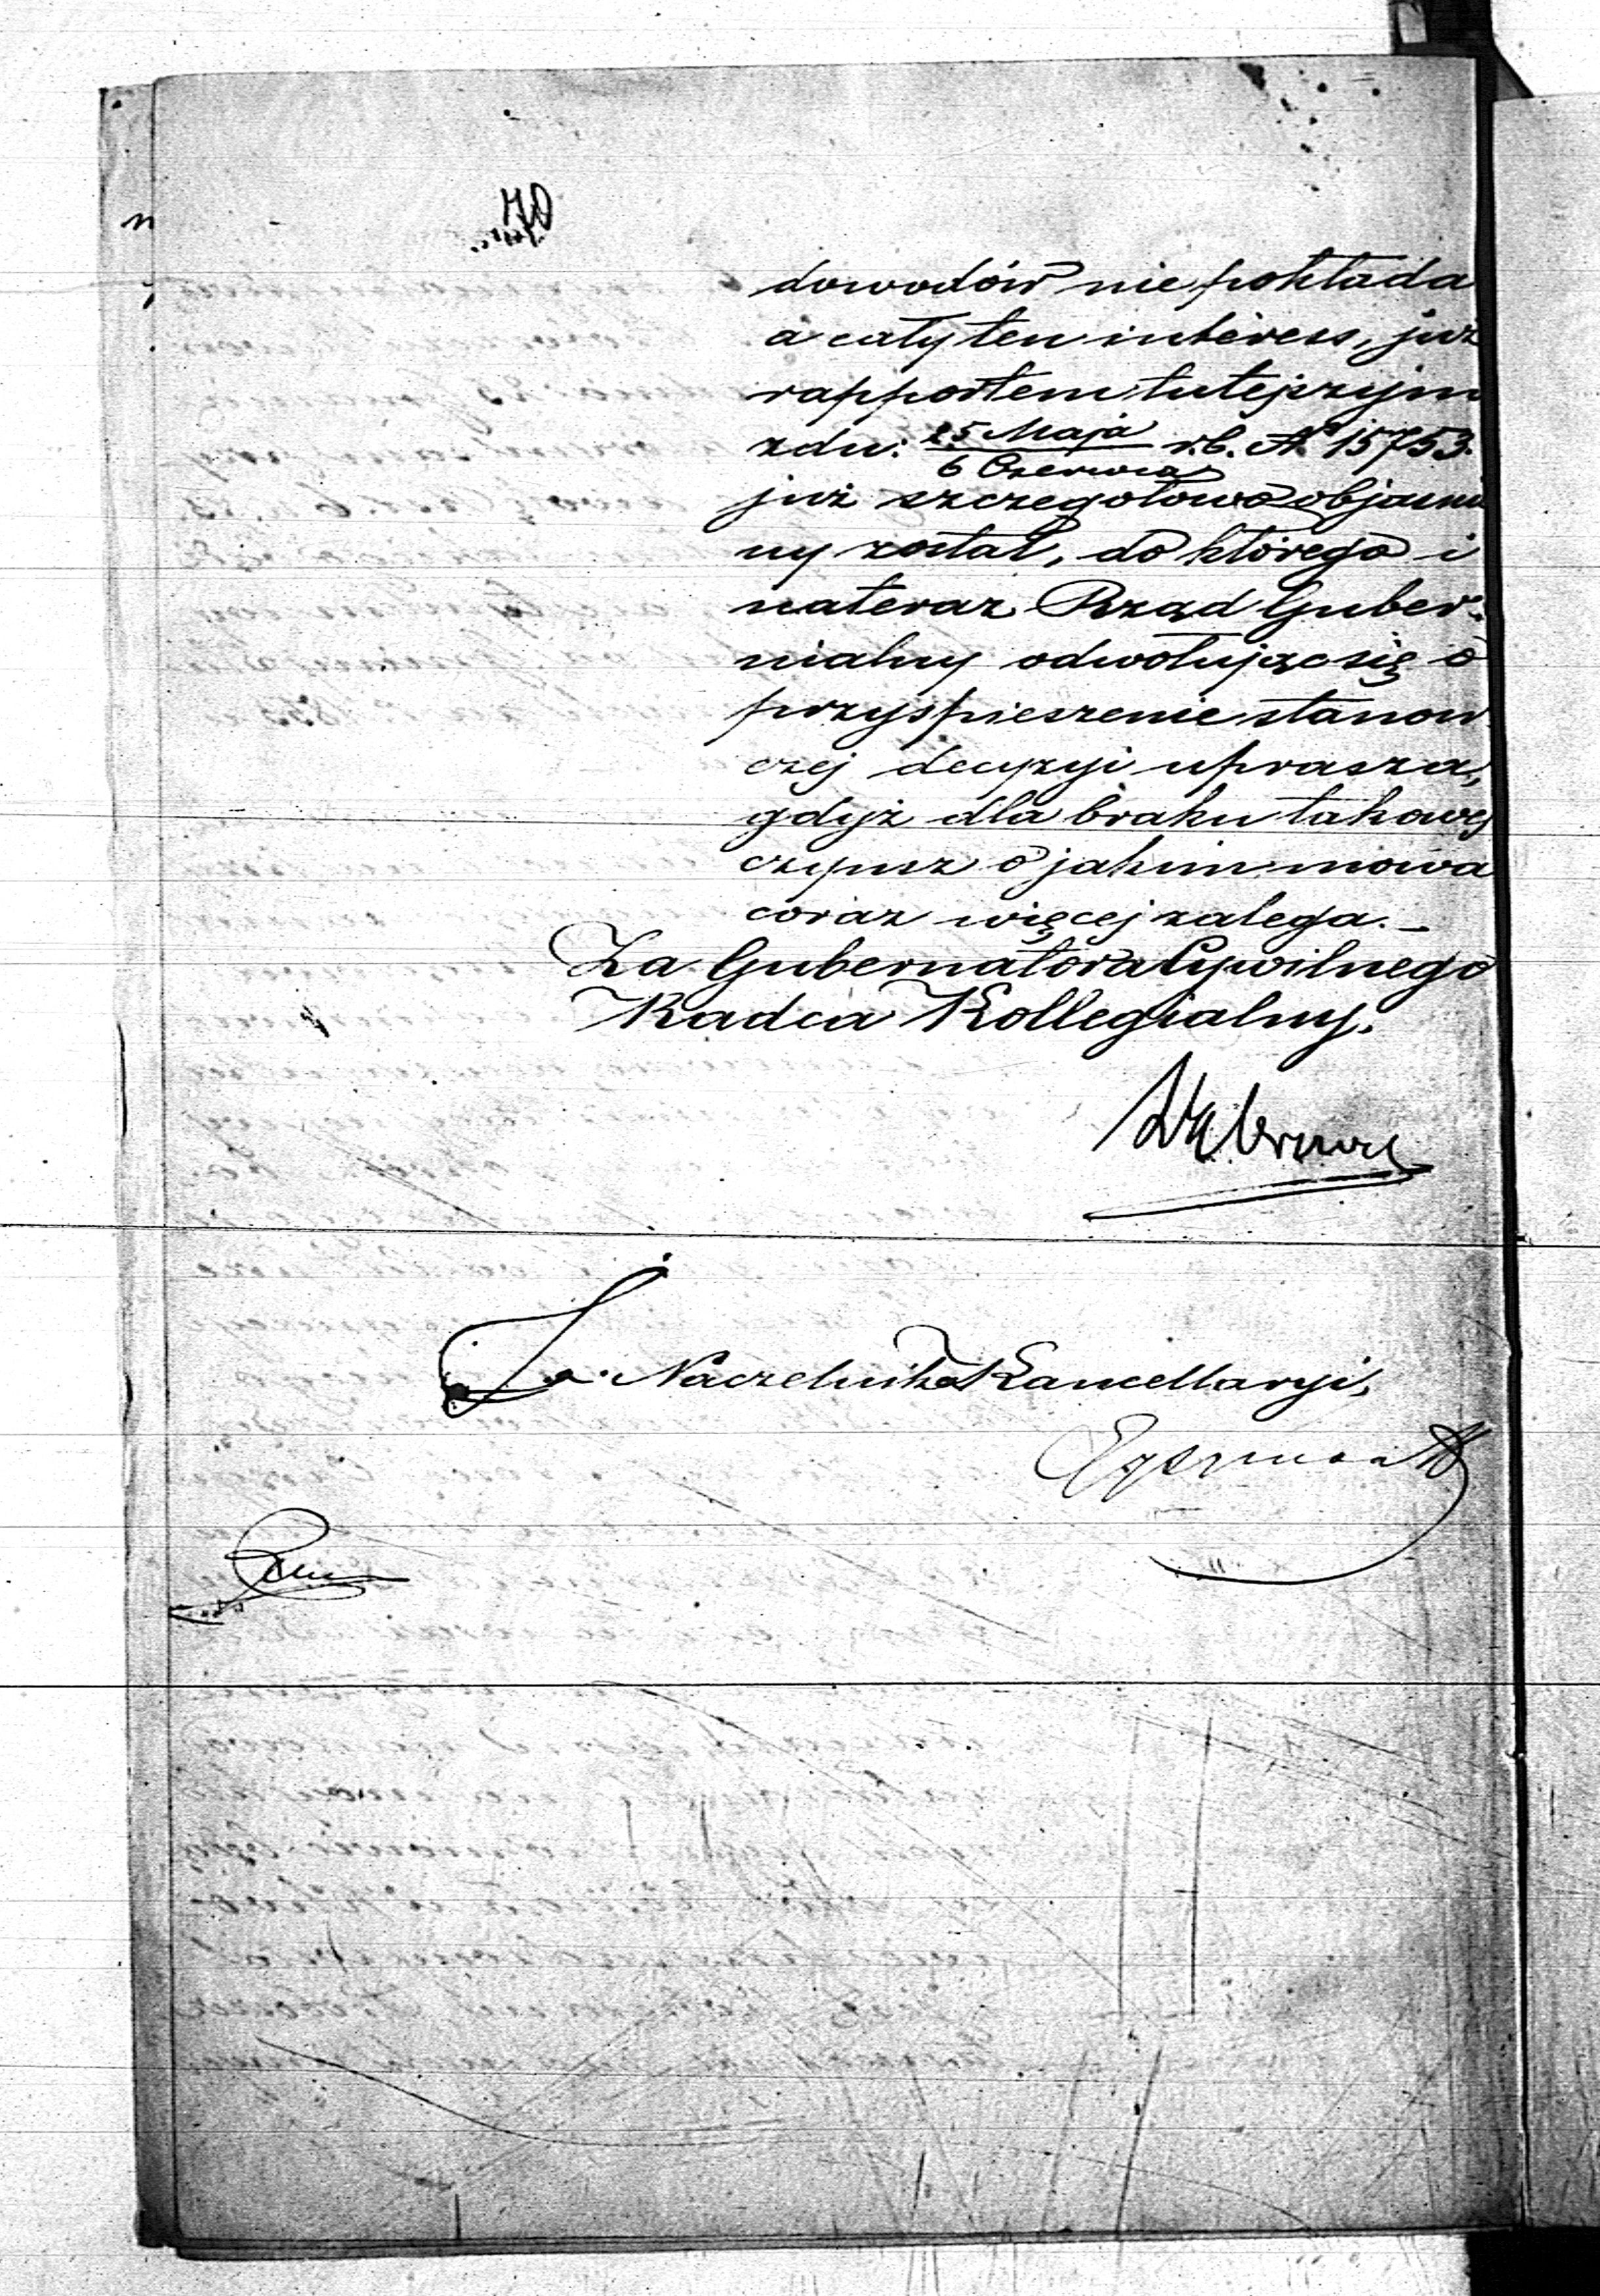 dowodów nie pokłada
a cały ten interess, już
rapportem tutejszym
z dn: 25 Maja / 6 Czerwca r.b. № 15753.
już szczegółowo objaśnio
ny został, do którego i
nateraz Rząd Guber-
nialny odwołując się o
przyspieszenie stanow
czej decyzyi uprasza,
gdyż dla braku takowej
czynsz o jakim mowa
coraz więcej zalega. —
Za Gubernatora Cywilnego
Radca Kollegialny.
Za Naczelnika Kancellaryi,